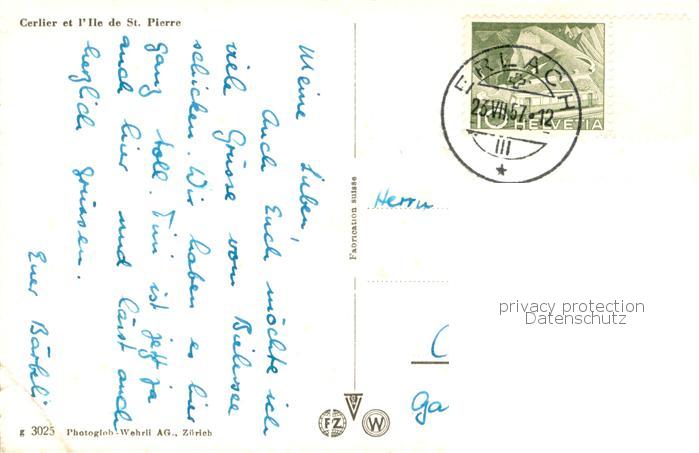 Cerlier et l'Ile de St. Pierre
Meine Lieben,
Auch Euch möchte ich
viele Grüsse vom Bielersee
schicken. Wir haben es hier
ganz toll. Timi ist jetz ja
auch hier und lässt auch
herzlich grüssen.
Euer Bärbeli
g 3025 Photoglob-Wehrli AG., Zürich
Fabrication suisse
ERLACH
23.VII.57.-12
III
10 HELVETIA
Herrn
Ga
privacy protection
Datenschutz
FZ
W